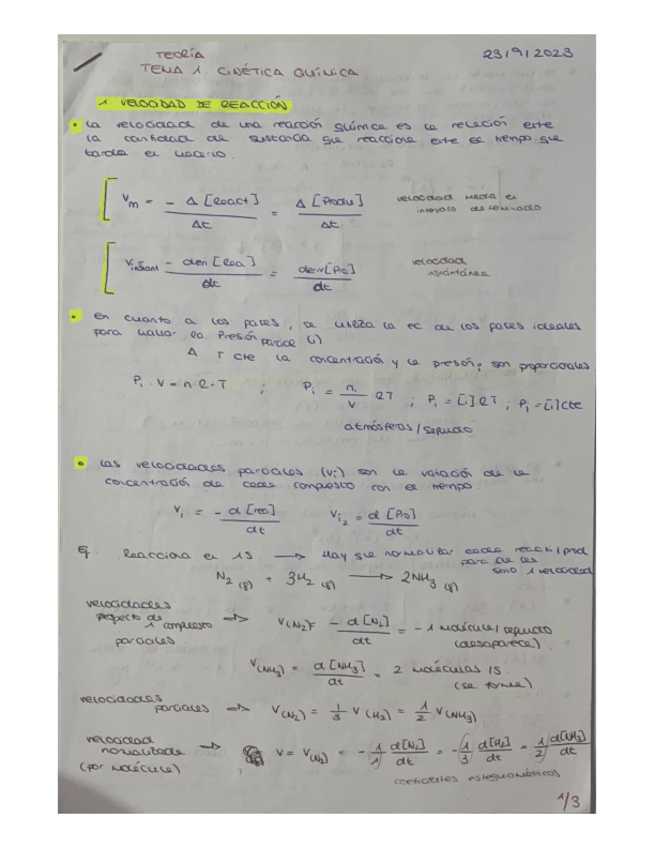 TEORÍA 23/9/2023
TEMA 1. CINÉTICA QUÍMICA
1. VELOCIDAD DE REACCIÓN
• La velocidad de una reacción química es la relación entre
la cantidad de sustancia que reacciona entre el tiempo que
tarda en hacerlo.
Vm = - Δ [React] / Δt = Δ [Produ] / Δt velocidad media en intervalo determinado
Vinstant - den [Rea] / dt = deriv [Pro] / dt velocidad instántánea
• En cuanto a los gases, se utiliza la ec. de los gases ideales
para hallar la Presión parcial (i)
A T cte la concentración y la presión; son proporcionales
Pi · V = n · R · T ; Pi = ni / V RT ; Pi = [i] RT ; Pi = [i] cte
atmósferas / segundo
• Las velocidades parciales (Vi) son la variación de la
concentración de cada compuesto con el tiempo.
Vi = - d [rea] / dt Vi2 = d [Pro] / dt
Ej. Reacciona en 1S. → Hay que normalizar cada react/prod
para que sea
solo 1 velocidad
N2 (g) + 3H2 (g) → 2NH3 (g)
velocidades
respecto de
1 compuesto → V(N2) = - d [N2] / dt = - 1 molécula / segundo
parciales (desaparece)
V(NH3) = d [NH3] / dt = 2 moléculas / S.
(se forma)
velocidades
parciales → V(N2) = 1/3 V(H2) = 1/2 V(NH3)
velocidad
normalizada → V = V(N2) = - 1/1 d[N2] / dt = - 1/3 d[H2] / dt = 1/2 d[NH3] / dt
(por molécula)
coeficientes estequiométricos
1/3